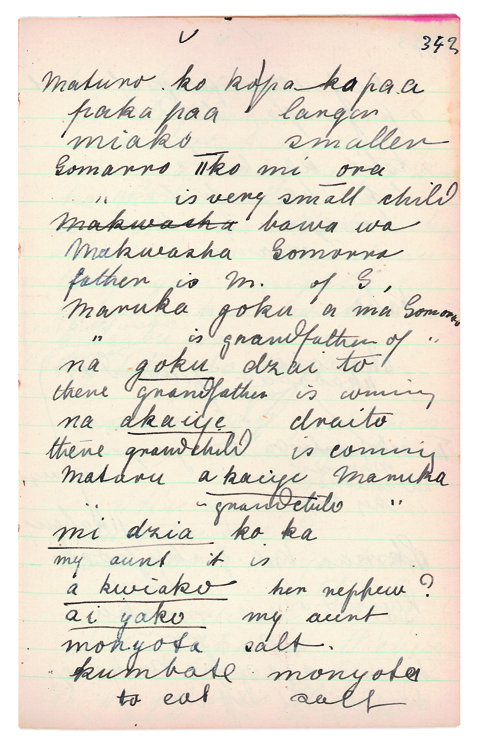 343
Maturo ko kopa kapaa
paka paa larger
miako smaller
Gomarro iiko mi ora
" is very small child
Makwasha bawa wa
Makwasha Gomorra
father is M. of G,
Maruka goku a ma Gomorro
" is grandfather of "
na goku dzai to
there grandfather is coming
na akaiye draito
there grandchild is coming
Mataru akaiye Maruka
" grandchild "
mi dzia ko ka
my aunt it is
a kwiako her nephew?
ai yako my aunt
monyota salt.
kumbate monyota
to eat salt